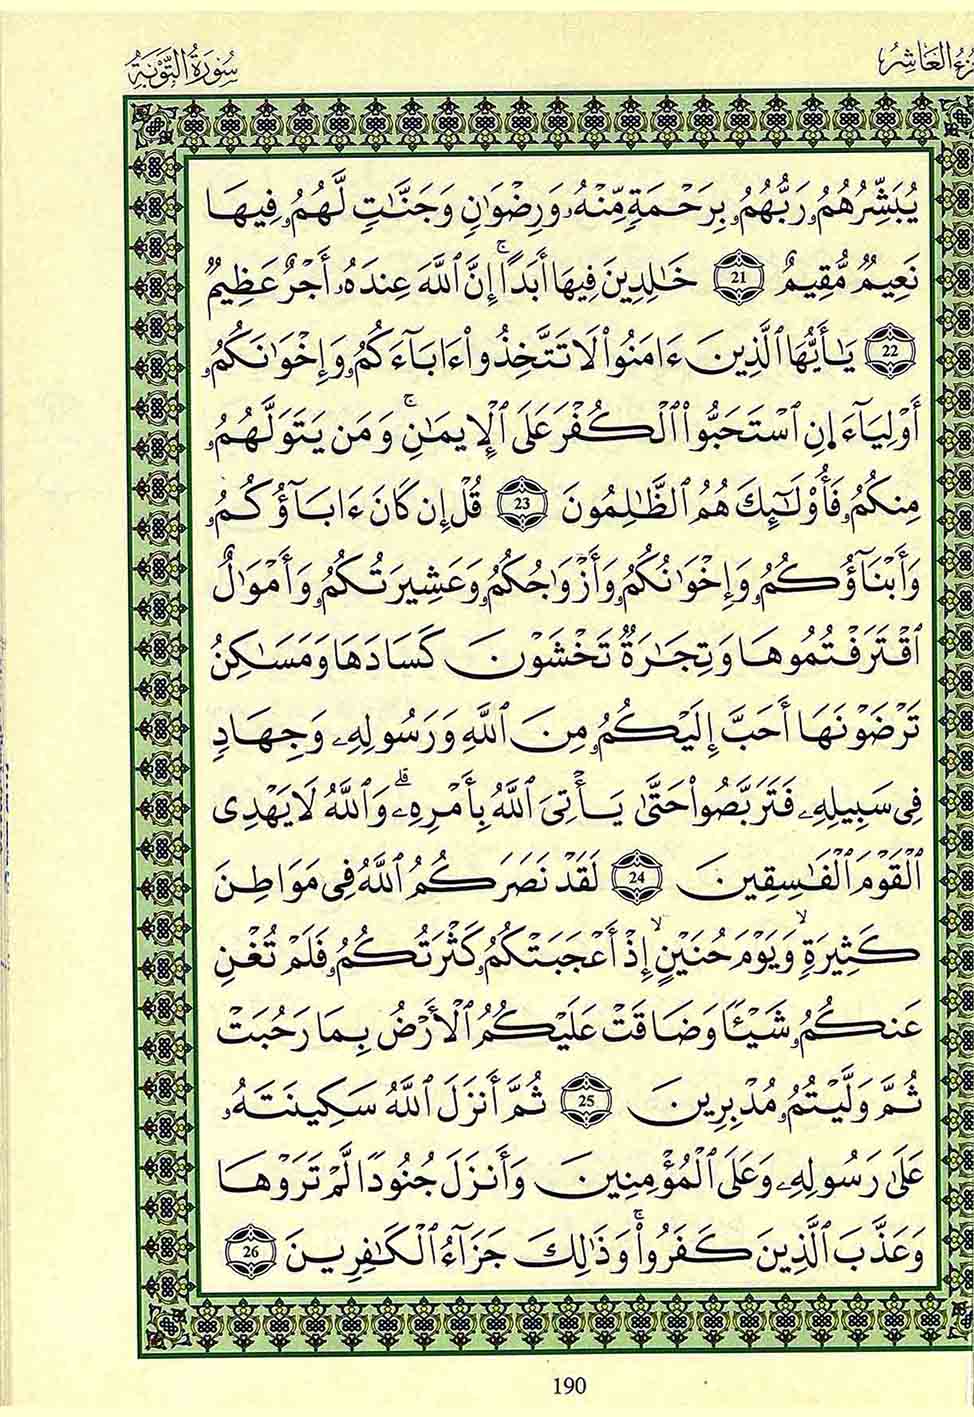 الجزء العاشر
سُورَةُ التَّوْبَةِ
يُبَشِّرُهُمُۥ رَبُّهُمُۥ بِرَحْمَةٍ مِّنْهُۥ وَرِضْوَانٍ وَجَنَّٰتٍ لَّهُمُۥ فِيهَا
نَعِيمٌ مُّقِيمٌ 21 خَٰلِدِينَ فِيهَا أَبَدًاۚ إِنَّ ٱللَّهَ عِندَهُۥ أَجْرٌ عَظِيمٌ
22 يَٰأَيُّهَا ٱلَّذِينَ ءَامَنُوا۟ لَا تَتَّخِذُوٓا۟ ءَابَآءَكُمُۥ وَإِخْوَٰنَكُمُۥ
أَوْلِيَآءَ إِنِ ٱسْتَحَبُّوا۟ ٱلْكُفْرَ عَلَى ٱلْإِيمَٰنِۚ وَمَن يَتَوَلَّهُمُۥ
مِنكُمُۥ فَأُو۟لَٰٓئِكَ هُمُ ٱلظَّٰلِمُونَ 23 قُلْ إِن كَانَ ءَابَآؤُكُمُۥ
وَأَبْنَآؤُكُمُۥ وَإِخْوَٰنُكُمُۥ وَأَزْوَٰجُكُمُۥ وَعَشِيرَتُكُمُۥ وَأَمْوَٰلٌ
ٱقْتَرَفْتُمُوهَا وَتِجَٰرَةٌ تَخْشَوْنَ كَسَادَهَا وَمَسَٰكِنُ
تَرْضَوْنَهَا أَحَبَّ إِلَيْكُمُۥ مِنَ ٱللَّهِ وَرَسُولِهِۦ وَجِهَادٍ
فِى سَبِيلِهِۦ فَتَرَبَّصُوا۟ حَتَّىٰ يَأْتِىَ ٱللَّهُ بِأَمْرِهِۦۗ وَٱللَّهُ لَا يَهْدِى
ٱلْقَوْمَ ٱلْفَٰسِقِينَ 24 لَقَدْ نَصَرَكُمُ ٱللَّهُ فِى مَوَاطِنَ
كَثِيرَةٍۙ وَيَوْمَ حُنَيْنٍۙ إِذْ أَعْجَبَتْكُمُۥ كَثْرَتُكُمُۥ فَلَمْ تُغْنِ
عَنكُمُۥ شَيْـًٔا وَضَاقَتْ عَلَيْكُمُ ٱلْأَرْضُ بِمَا رَحُبَتْ
ثُمَّ وَلَّيْتُمُۥ مُدْبِرِينَ 25 ثُمَّ أَنزَلَ ٱللَّهُ سَكِينَتَهُۥ
عَلَىٰ رَسُولِهِۦ وَعَلَى ٱلْمُؤْمِنِينَ وَأَنزَلَ جُنُودًا لَّمْ تَرَوْهَا
وَعَذَّبَ ٱلَّذِينَ كَفَرُوا۟ۚ وَذَٰلِكَ جَزَآءُ ٱلْكَٰفِرِينَ 26
190